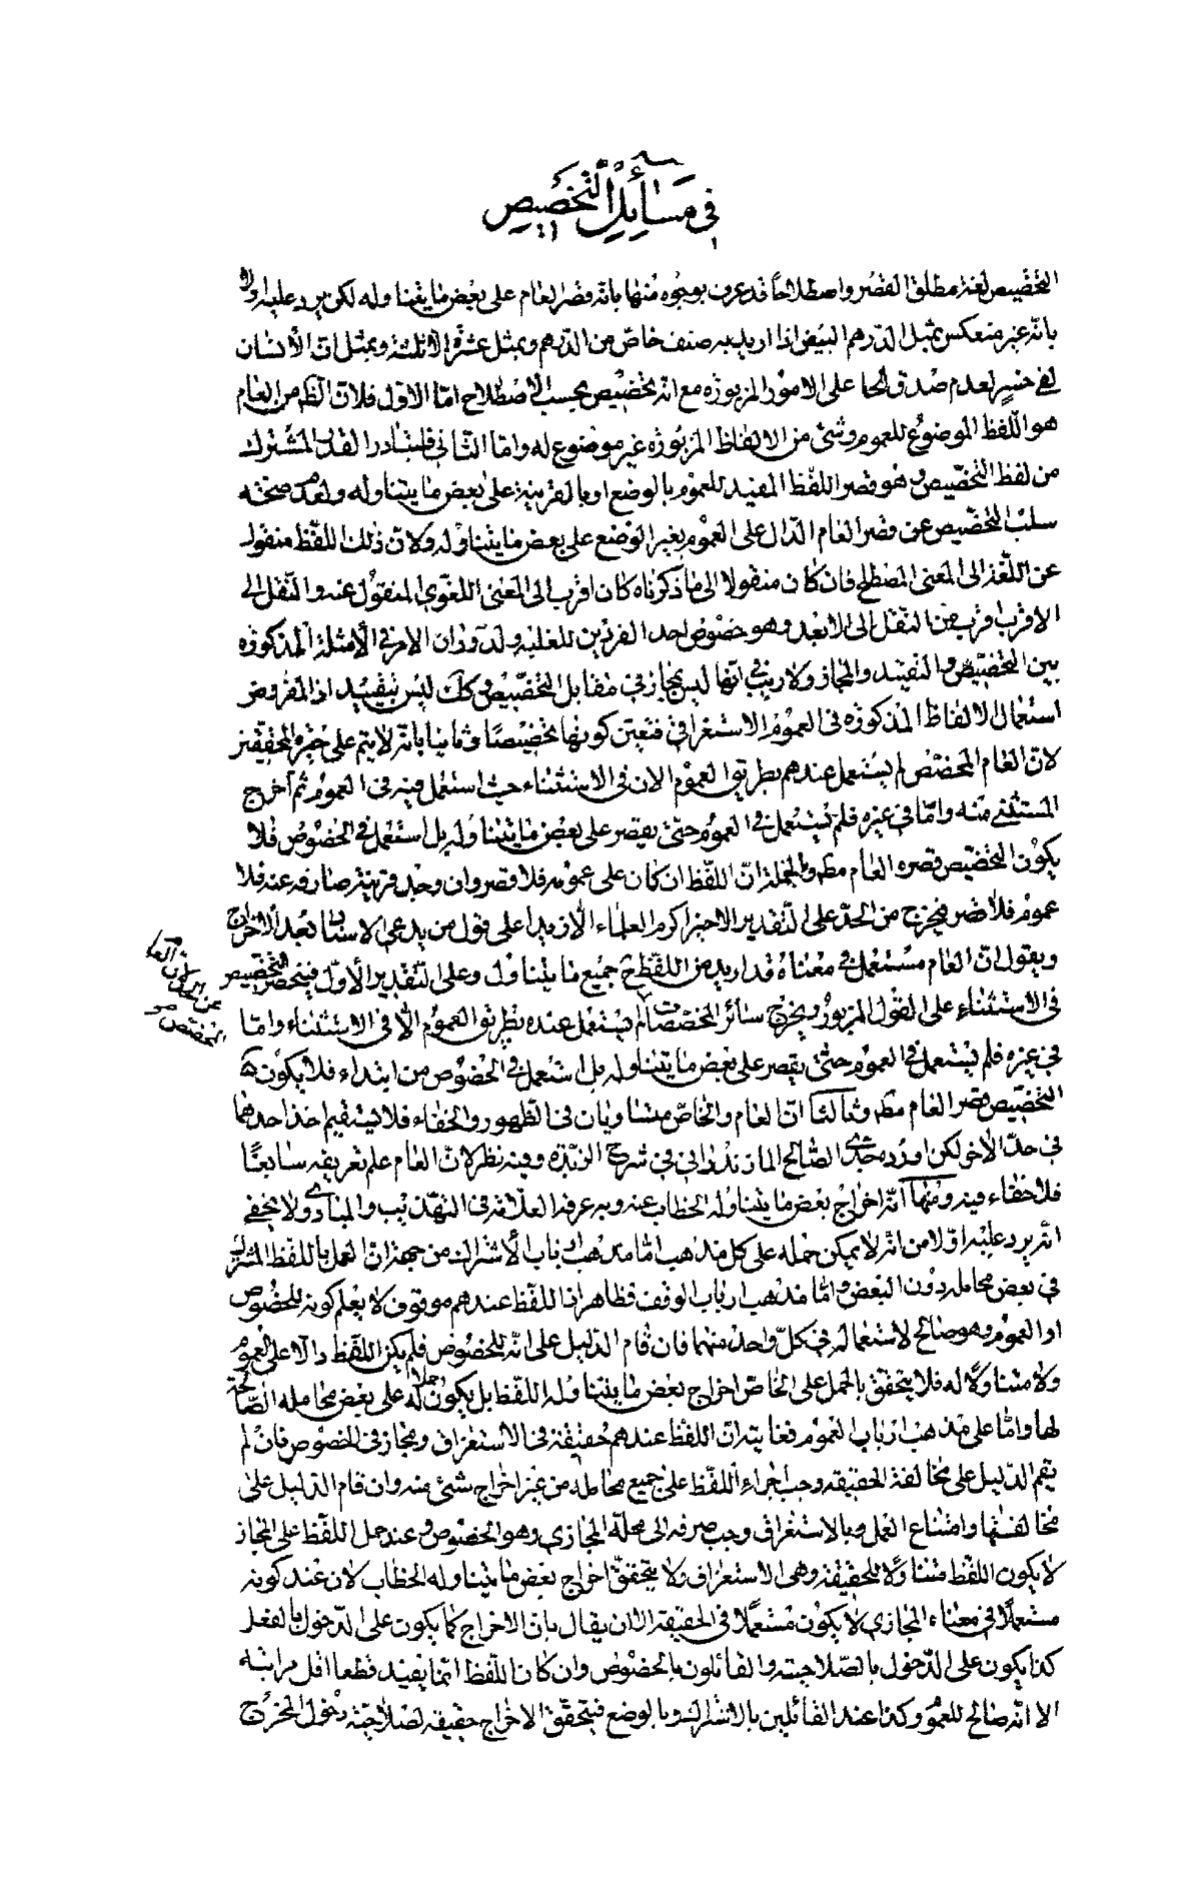 في مسائل التخصيص
التخصيص لغة مطلق القصر واصطلاحا قد عرف بوجوه منها بانه قصر العام على بعض ما يتناوله لكن يرد عليه اولا
بانه غير منعكس بمثل الدرهم البيض اذا اريد به صنف خاص من الدرهم وبمثل عشرة الا ثلثة وبمثل ان الانسان
لفي خسر لعدم صدق على الامور المزبورة مع انه تخصيص بحسب الاصطلاح اما الاول فلان الظ من العام
هو اللفظ الموضوع للعموم وشئ من الالفاظ المزبورة غير موضوع له واما الثاني فلتبادر القدر المشترك
من لفظ التخصيص وهو قصر اللفظ المفيد للعموم بالوضع او بالقرينة على بعض ما يتناوله ولعدم صحة
سلب التخصيص عن قصر العام الدال على العموم بغير الوضع على بعض ما يتناوله ولان ذلك اللفظ منقول
عن اللغة الى المعنى المصطلح فان كان منقولا الى ما ذكرناه كان اقرب الى المعنى اللغوي المنقول عنه والنقل الى
الاقرب اقرب من النقل الى الابعد وهو خصوص احد الفردين للغلبة ولدوران الامر في الامثلة المذكورة
بين التخصيص والتقييد والمجاز ولا ريب في انها ليس بمجاز في مقابل التخصيص وكك ليس بتقييد اذ المفروض
استعمال الالفاظ المذكورة في العموم الاستغراقي فتعين كونها تخصيصا وثانيا بانه لا يتم على خيرة المحققين
لان العام المخصص لم يستعمل عندهم بطريق العموم الا في الاستثناء حيث استعمل فيه في العموم ثم اخرج
المستثنى منه واما في غيره فلم يستعمل في العموم حتى يقصر على بعض ما يتناوله بل استعمل في الخصوص فلا
يكون التخصيص قصره العام مط وبالجملة ان اللفظ ان كان على عمومه فلا قصر وان وجد قرينة صارفة عنه فلا
عموم فلا قصر فيخرج من الحد على التقدير الاخير اكرم العلماء الا زيدا على قول من يدعي الاسناد بعد الاخراج
ويقول ان العام مستعمل في معناه قد اريد من اللفظ جميع ما يتناول وعلى التقدير الاول فينحصر التخصيص
في الاستثناء على القول المزبور ويخرج سائر المخصصات لم يستعمل عنده بطريق العموم الا في الاستثناء واما
في غيره فلم يستعمل في العموم حتى يقصر على بعض ما يتناوله بل استعمل في الخصوص من ابتداء فلا يكون
التخصيص قصر العام مط وثالثا ان العام والخاص متساويان في الظهور والخفاء فلا يستقيم اخذ احدهما
في حد الاخر لكن اورده جدي الصالح المازندراني في شرح الزبدة وفيه نظر لان العام علم تعريفه سابقا
فلا خفاء فيه ومنها انه اخراج بعض ما يتناوله الخطاب عنه وبه عرفه العلامة في التهذيب والمبادي ولا يخفى
انه يرد عليه اولا من انه لا يمكن حمله على كل مذهب اما مذهب ارباب الاشتراك من جهة ان العمل باللفظ المشترك
في بعض محامله دون البعض واما مذهب ارباب الوقف فظاهر اذ اللفظ عندهم موقوف لا يعلم كونه للخصوص
او العموم وهو صالح لاستعماله في كل واحد منهما فان قام الدليل على انه للخصوص فلم يكن اللفظ دالا على العموم
ولا متناولا له فلا يتحقق بالحمل على الخاص اخراج بعض ما يتناوله اللفظ بل يكون حملا له على بعض محامله الصالحة
لها واما على مذهب ارباب العموم فغايته ان اللفظ عندهم حقيقة في الاستغراق ومجاز في الخصوص فان لم
يقم الدليل على مخالفة الحقيقة وجب اجراء اللفظ على جميع محامله من غير اخراج شئ منه وان قام الدليل على
مخالفتها وامتناع العمل وبالاستغراق وجب صرفه الى محله المجازي وهو الخصوص وعند حمل اللفظ على المجاز
لا يكون اللفظ متناولا للحقيقة وهي الاستغراق ولا يتحقق اخراج بعض ما يتناوله الخطاب لان عند كونه
مستعملا في معناه المجازي لا يكون مستعملا في الحقيقة الا ان يقال بان الاخراج كما يكون على الدخول بالفعل
كذا يكون على الدخول بالصلاحيته والقائلون بالخصوص وان كان اللفظ انما يفيد قطعا اقل مراتبه
الا انه صالح للعموم وكذا عند القائلين بالاشتراك وبالوضع فيتحقق الاخراج حقيقة لصلاحيته دخول المخرج